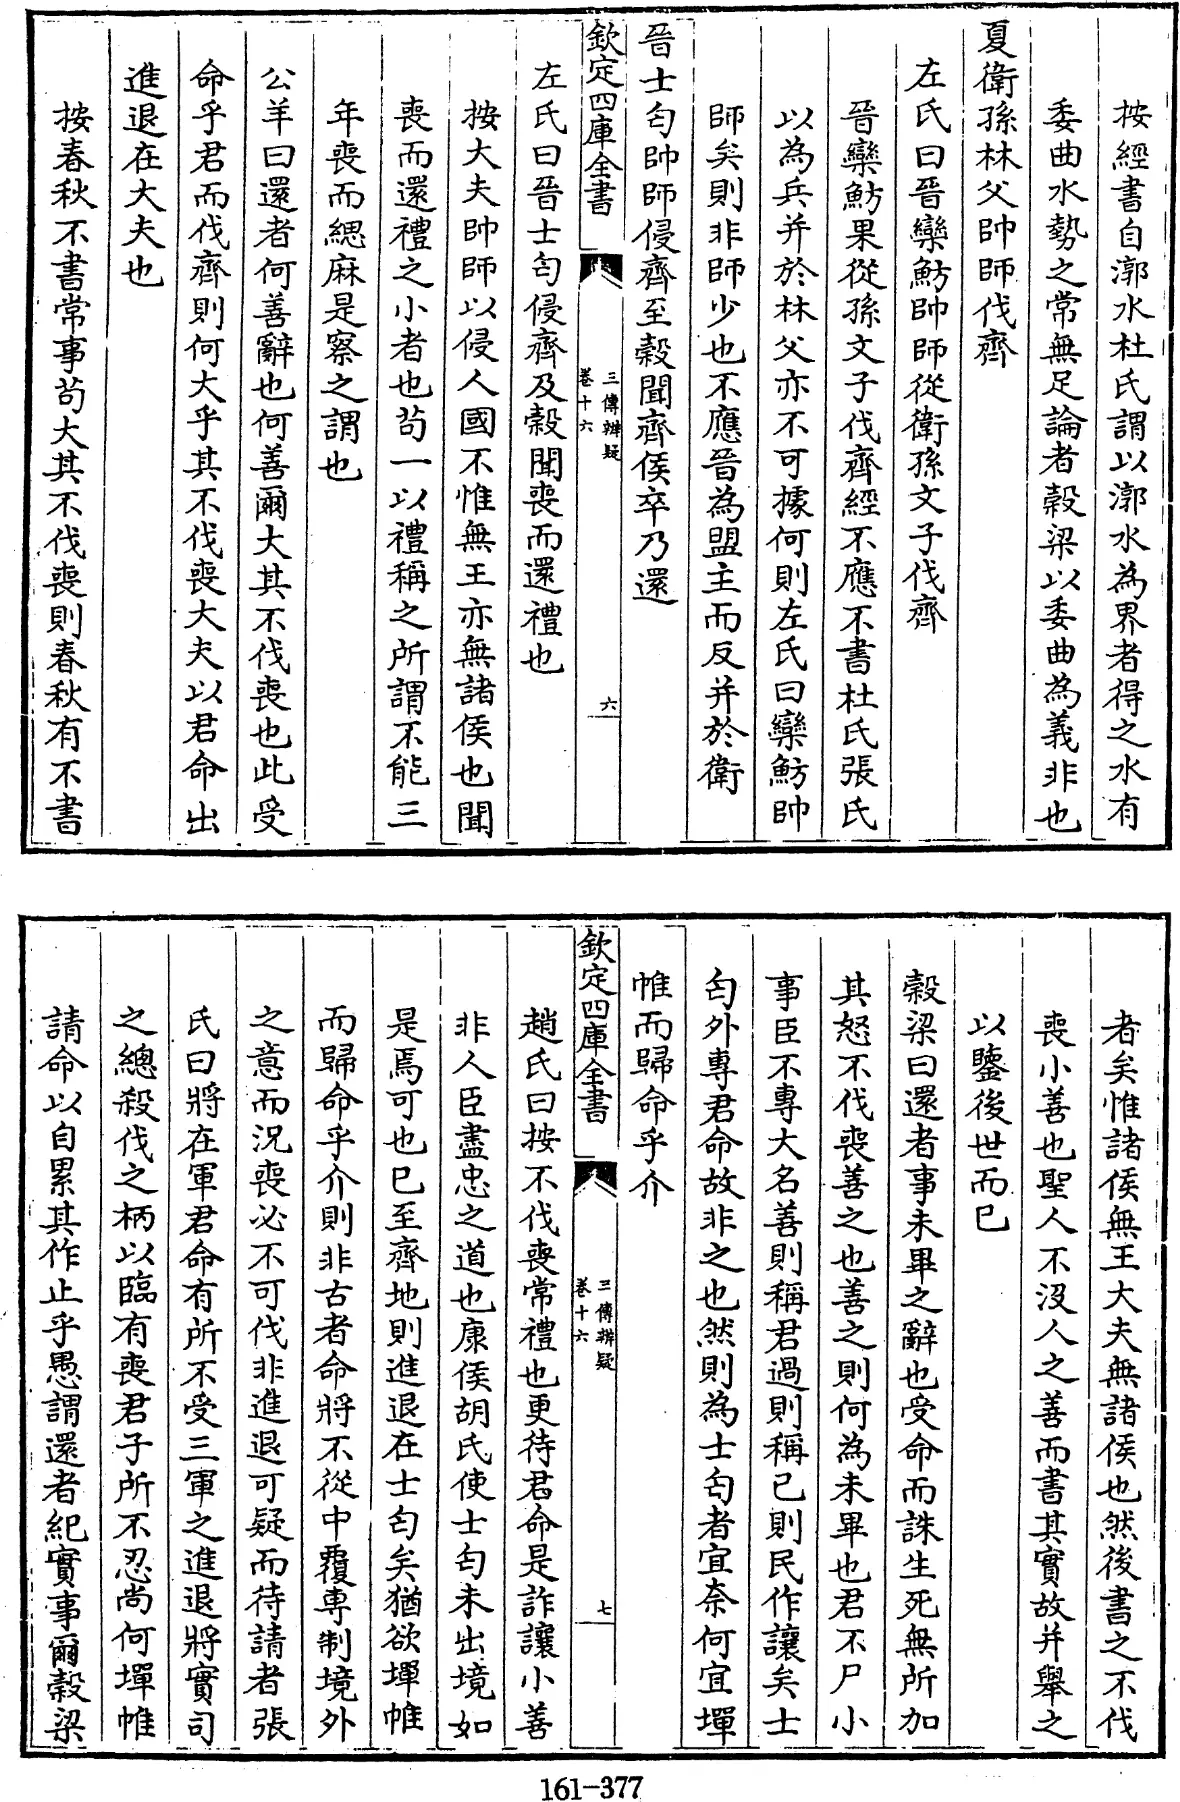 按經書自漷水杜氏謂以漷水為界者得之水有
委曲水勢之常無足論者榖梁以委曲為義非也
夏衛孫林父帥師伐齊
左氏曰晉欒魴帥師從衛孫文子伐齊
晉欒魴果從孫文子伐齊經不應不書杜氏張氏
以為兵并於林父亦不可據何則左氏曰欒魴帥
師矣則非師少也不應晉為盟主而反并於衛
晉士匄帥師侵齊至榖聞齊侯卒乃還
欽定四庫全書
三傳辨疑
卷十六
六
左氏曰晉士匄侵齊及榖聞喪而還禮也
按大夫帥師以侵人國不惟無王亦無諸侯也聞
喪而還禮之小者也茍一以禮稱之所謂不能三
年喪而緦麻是察之謂也
公羊曰還者何善辭也何善爾大其不伐喪也此受
命乎君而伐齊則何大乎其不伐喪大夫以君命出
進退在大夫也
按春秋不書常事茍大其不伐喪則春秋有不書
者矣惟諸侯無王大夫無諸侯也然後書之不伐
喪小善也聖人不沒人之善而書其實故并舉之
以鑒後世而已
榖梁曰還者事未畢之辭也受命而誅生死無所加
其怒不伐喪善之也善之則何為未畢也君不尸小
事臣不專大名善則稱君過則稱已則民作讓矣士
匄外專君命故非之也然則為士匄者宜奈何宜墠
帷而歸命乎介
欽定四庫全書
三傳辨疑
卷十六
七
趙氏曰按不伐喪常禮也更待君命是詐讓小善
非人臣盡忠之道也康侯胡氏使士匄未出境如
是焉可也已至齊地則進退在士匄矣猶欲墠帷
而歸命乎介則非古者命將不從中覆専制境外
之意而況喪必不可伐非進退可疑而待請者張
氏曰將在軍君命有所不受三軍之進退將實司
之總殺伐之柄以臨有喪君子所不忍尚何墠帷
請命以自累其作止乎愚謂還者紀實事爾榖梁
161-377